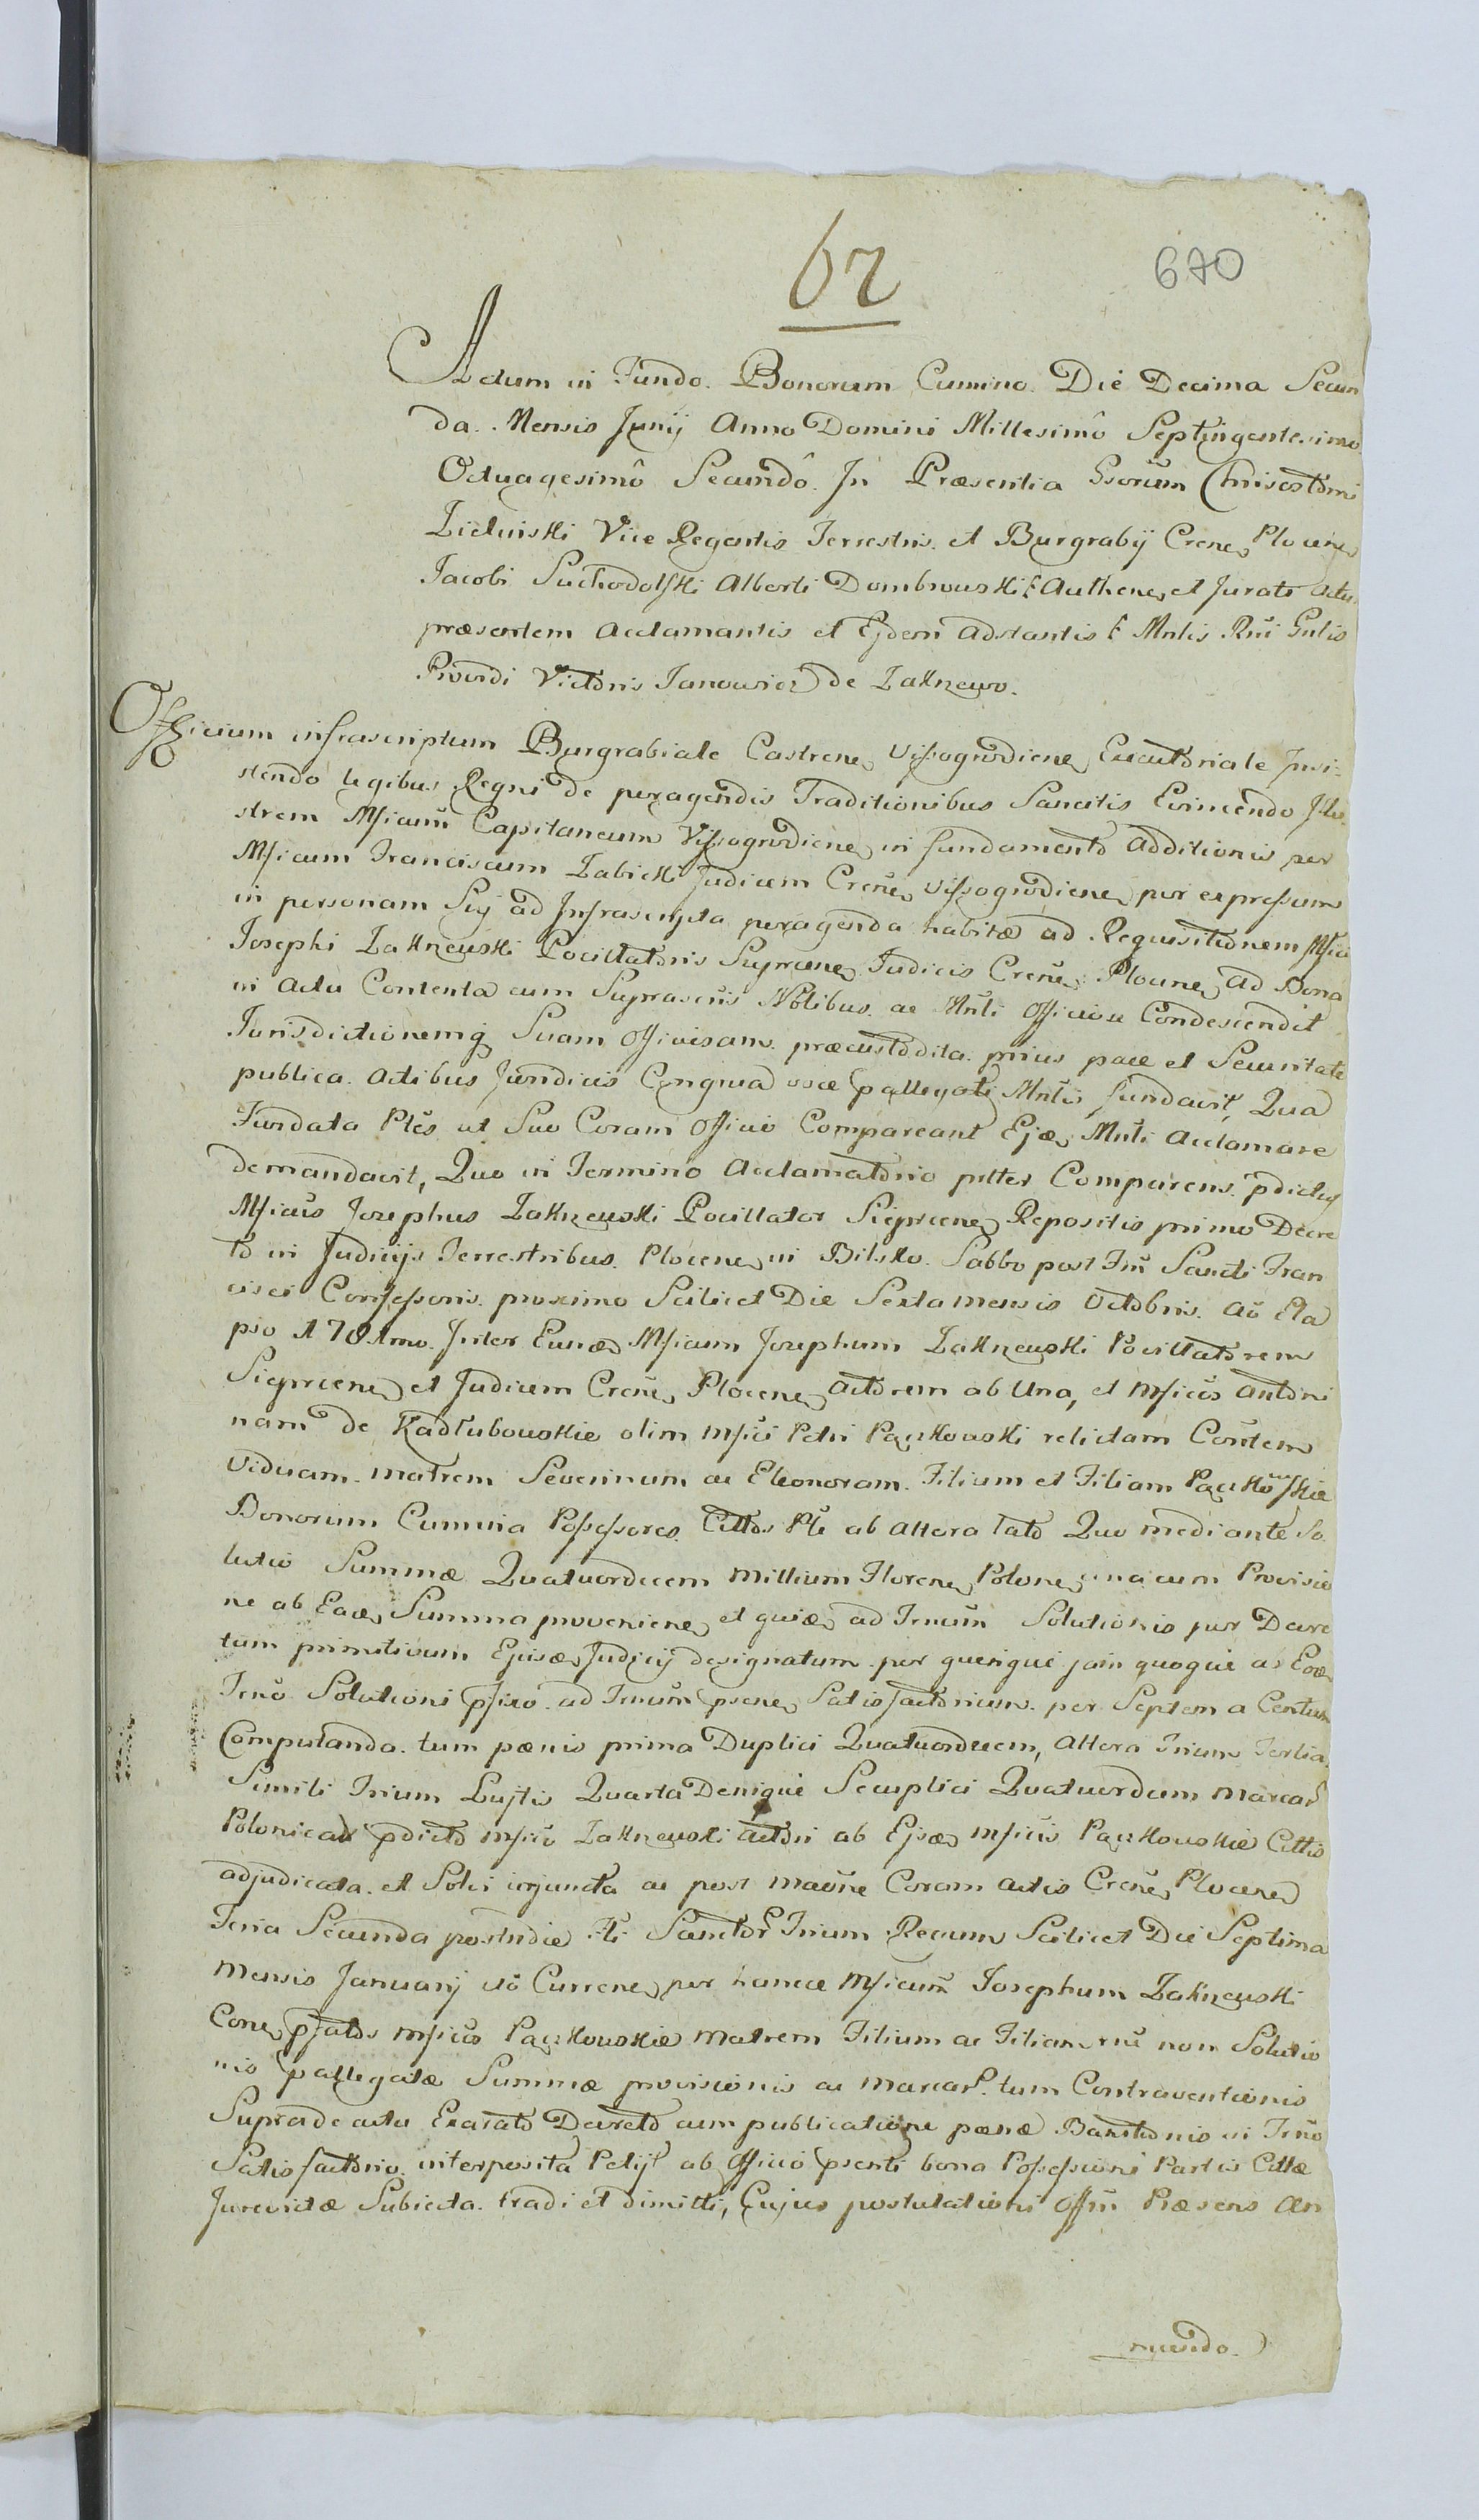 62
670
Actum in Fundo Bonorum Cumino Die Decima Secun
da Mensis Junij Anno Domini Millesimô Septingentesimo
Octuagesimô Secundô. In Præsentia Gsorum Chrisostomi
Vice Regentis Terrestris et Burgrabij Crene Plocene
Jacobi Suchodolski Alberti Dombrowski Authene et Jurati actu
præsentem acclamantis et Ejdem adstantis Mnlis Rni Gnlis
Providi Victoris Janowicz de Zakrzewo.
Officium infrascriptum Burgrabiale Castrene Vissogrodiene Executoriale Insi
stendo legibus Regni de peragendis Traditionibus Sancitis Evincendo Illu
strem Mficum Capitaneum Vissogrodiene in fundamento additionis per
Mficum Franciscum Zabicki Judicem Crene Vissogrodiene per expressum
in personam Sui ad Infrascripta peragenda habitæ ad Requisitionem Mfici
Josephi Zakrzewski Pocillatoris Sieprcene Judicis Crene Plocne ad Bona
in actu Contenta cum Suprascris Nobibus ac Mnli Officiose Condescendit
Jurisdictionemq Suam Officiosam præcustodita prius pace et Securitate
publica actibus Juridicis Congrua voce pallegati Mnlis fundavit, Qua
Fundata Ptes ut Suo Coram Officio Compareant Ejdæ Mnli acclamare
demandavit, Quo in Termino acclamatorio pltter Comparens pdictus
Mficus Josephus Zakrzewski Pocillator Sieprcene Repositis primo Decre
to in Judicijs Terrestribus Plocene in Bilsko Sabbo post Ftm Sancti Fran
cisci Confessoris proximo Scilicet Die Sexta mensis Octobris aõ Ela
pso 1781mo Inter Eunde Mficum Josephum Zakrzewski Pocillatorem
Sieprcene et Judicem Crene Plocene actorem ab Una, et Mficos antoni
nam de Kadłubowskie olim Mfici Petri Paczkowski relictam Contem
Viduam matrem Severinum ac Eleonoram Filium et Filiam Paczkowskie
Bonorum Cumina Possessores Cittos Pte ab altera lato Quo mediante So
lutio Summæ Quatuordecem millium Florene Polone una cum Provisio
ne ab Eade Summa proveniene et quide ad Trnum Solutionis per Decre
tum primitivum Ejusde Judicij designatum per quinque jam quoque ab Eode
Trno Solutioni pfixo ad Trnum psene Satisfactorium per Septem a Centum
Computanda tum pænis prima Duplici Quatuordecem, altera Trium Tertia
Simili Trium Luitis Quarta Denique Sexuplici Quatuordecem marcar
Polonicar pdicto Mfico Zakrzewski actori ab Ejsde Mficis Paczkowskie Cittis
adjudicata et Solvi injuncta ac post Coram actis Crene Plocene
Feria Secunda postridie Fti Sanctor Trium Regum Scilicet Die Septima
Mensis Januarij aõ Currene per hunce Mficum Josephum Zakrzewski
Conre pfatos Mficos Paczkowskie matrem Filium ac Filiam rne non Solutio
nis pallegatæ Summæ provisionis ac marcar tum Contraventionis
Suprade actu Exarato Decreto cum publicatione pænæ Bannitionis in Trno
Satisfactorio interposita Petijt ab Officio psenti bona Possessioni Partis Cittæ
Jurevictæ Subiecta tradi et dimitti, Cujus postulationi Offm Præsens an
nuendo.